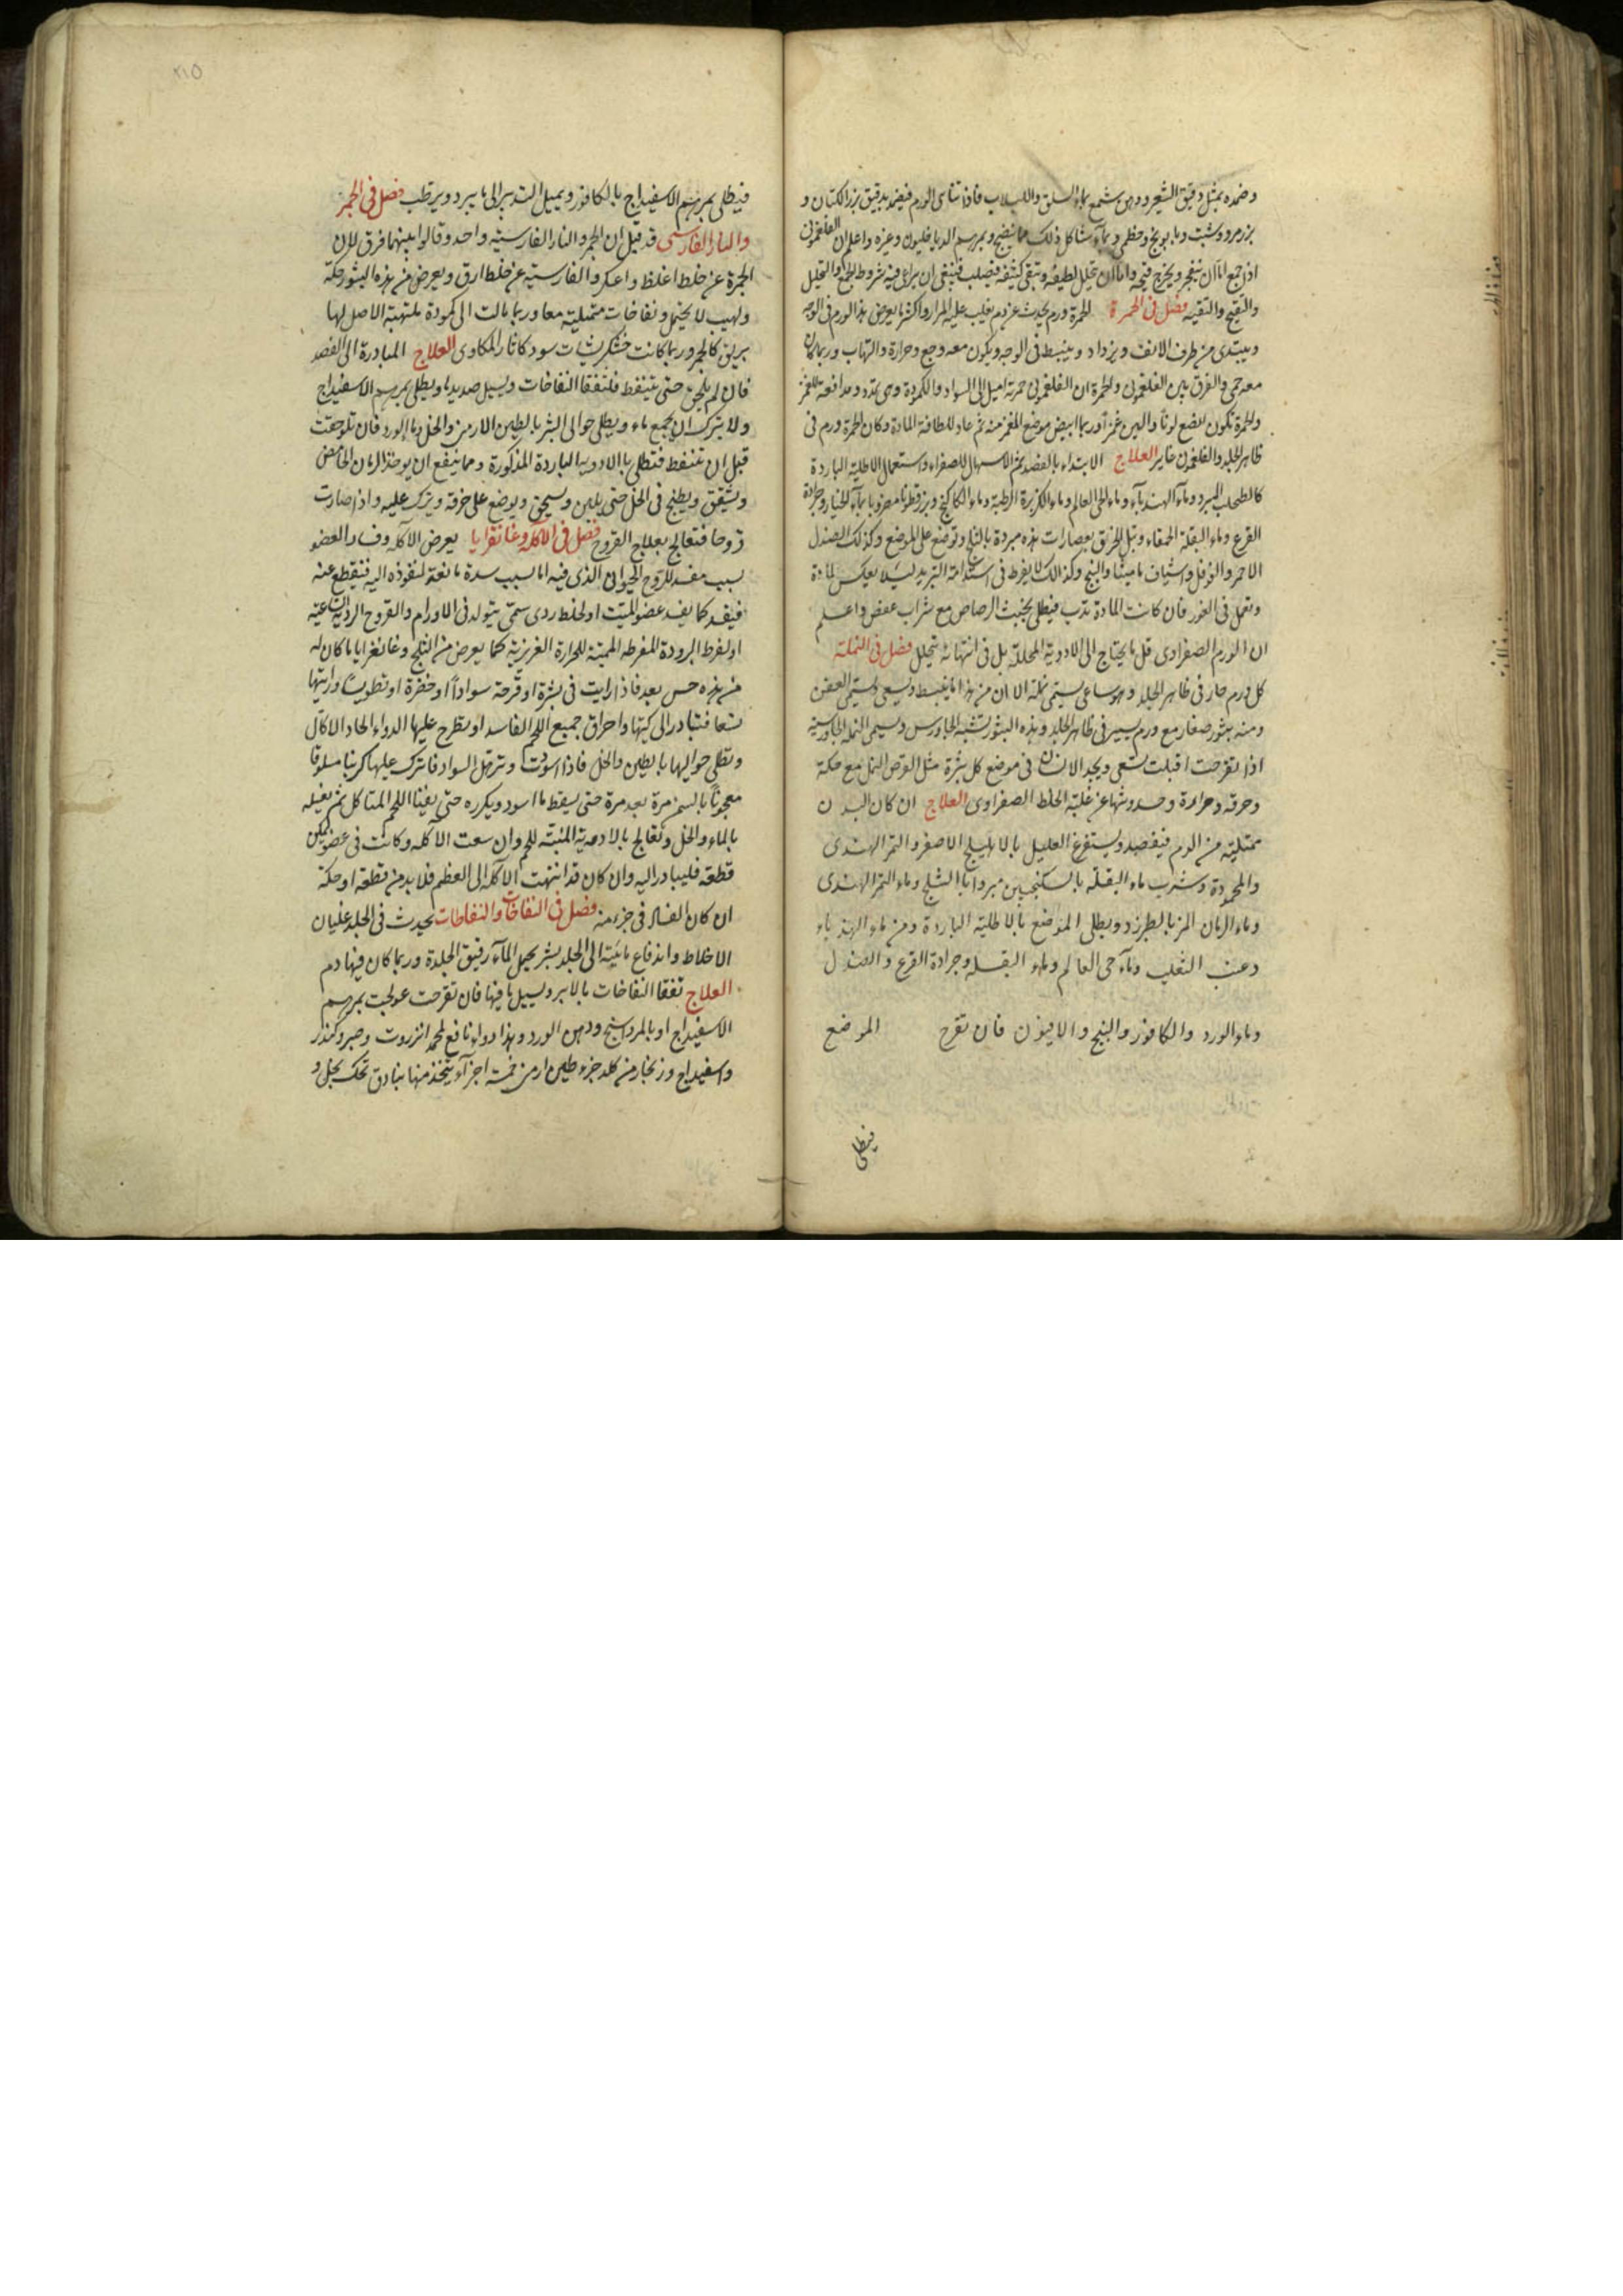 وضمده بمثل دقيق الشعير ودهن شمع بماء السلق واللبلاب فاذا تناهى الورم فيضمد بدقيق بزر الكتان و
بزر مرو وشبت وبابونج وخطمى وماء شاكل ذلك مما ينضج وبمرهم الدياخليون وغيره واعلم ان الفلغمونى
اذا جمع اما ان ينفجر ويخرج قيحه واما ان تحلل لطيفه وتبقى كثيفه فيصلب فينبغى ان يراعى فيه شروط الجمع والتحليل
والتقيح والتنقيه فصل فى الحمرة الحمرة ورم يحدث عن دم يغلب عليه المرار واكثر ما يعرض هذا الورم فى الوجه
ويبتدى من طرف الانف ويزداد وينبسط فى الوجه ويكون معه وجع وحرارة والتهاب وربما كان
معه حمى والفرق بين الفلغمونى والحمرة ان الفلغمونى حمرته اميل الى السواد والكمودة وهى تمدد ومدافعة للغمز
والحمرة تكون انصع لونا والين غمزا وربما ابيض موضع الغمز منه ثم عاد للطافة المادة وكان الحمرة ورم فى
ظاهر الجلد والفلغمونى غاير العلاج الابتداء بالفصد ثم الاسهال للصفراء واستعمال الاطلية الباردة
كالطحلب المبرد وماء الهندباء وماء حى العالم وماء الكزبرة الرطبة وماء الكاكنج وبزرقطونا مضروبا بماء الخيار وجرادة
القرع وماء البقلة الحمقاء وتبل الخرق بعصارات هذه مبردة بالثلج وتوضع على الموضع وكذلك الصندل
الاحمر والفوفل واشياف ماميثا والبنج وكذالك لا يفرط فى استدامة التبريد ليلا يعكس المادة
وتحمل فى الغور فان كانت المادة تدب فيطلى بخبث الرصاص مع شراب عفص واعلم
ان الورم الصفراوى قل ما يحتاج الى الادوية المحللة بل فى انتهائه يتحلل فصل فى النملة
كل ورم حار فى ظاهر الجلد وهو ساعى يسمى نملة الا ان من هذا ما ينبسط ويسعى ويسمى العفن
ومنه بثور صغار مع ورم يسير فى ظاهر الجلد وهذه البثور تشبه الجاورس ويسمى النملة الجاورسية
اذا تقرحت اقبلت تسعى ويجد الانسان فى موضع كل بثرة مثل القرص النمل مع حكة
وحرقة وحرارة وحدوثها عن غلبة الخلط الصفراوى العلاج ان كان البدن
ممتليه من الدم فيفصد ويستفرغ العليل بالاهليلج الاصفر والتمر الهندى
والمحمودة وشرب ماء البقلة بالسكنجبين مبردا بالثلج وماء التمر الهندى
وماء الرمان المز بالطبرزد ويطلى الموضع بالاطلية الباردة ومن ماء الهندباء
وعنب الثعلب وماء حى العالم وماء البقله وجرادة القرع والصندل
وماء الورد والكافور والبنج والافيون فان تقرح الموضع
فيطلى
٢١٥
فيطلى بمرهم الاسفيداج بالكافور ويميل التدبير الى ما يبرد ويرطب فصل فى الجمر
والنار الفارسى قد قيل ان الجمر والنار الفارسية واحد وقالوا بينهما فرق لان
الجمرة عن خلط اغلظ واعكر والفارسية عن خلط ارق ويعرض من هذه البثور حكة
ولهيب لا يحتمل ونفاخات ممتلية معا وربما مالت الى كمودة ملتهبة الاصل لها
بريق كالجمر وربما كانت خشكريشات سود كاثار المكاوى العلاج المبادرة الى الفصد
فان لم يلحق حتى تنفط فلتفقا النفاخات ويسيل صديدها ويطلى بمرهم الاسفيداج
ولا يترك ان يجمع ماء ويطلى حوالى البثر بالطين الارمنى والخل وماء الورد فان تلوحقت
قبل ان تنفط فتطلى بالادوية الباردة المذكورة ومما ينفع ان يوخذ الرمان الحامض
ويشقق ويطبخ فى الخل حتى يلين ويسحق ويوضع على خرقة ويترك عليه واذا صارت
قروحا فتعالج بعلاج القروح فصل فى الآكلة وغانقرايا يعرض الآكلة وفساد العضو
بسبب مفسد للروح الحيوانى الذى فيه اما بسبب سدة مانعة لنفوذه اليه فينقطع عنه
فيفسد كما يفسد عضو الميت او لخلط ردى سمى يتولد فى الاورام والقروح الردية الساعية
او لفرط البرودة المفرطه المميتة للحرارة الغريزية كما يعرض من الثلج وغانغرايا ما كان له
من هذه حس بعد فاذا رايت فى بثرة او قرحة سوادا او خضرة او تطويسا ورايتها
تسعا فتبادر الى كيها واحراق جميع اللحم الفاسد او يطرح عليها الدواء الحاد الاكال
وتطلى حواليها بالطين والخل فاذا اسودت وترهل السواد فاترك عليها كرنبا مسلوقا
معجونا بالسمن مرة بعد مرة حتى يسقط ما اسود ويكرره حتى يفنا اللحم المتاكل ثم يغسله
بالماء والخل وتعالج بالادوية المنبتة للحم وان سعت الآكلة وكانت فى عضو يمكن
قطعه فليبادر اليه وان كان قد انتهت الآكلة الى العظم فلا بد من قطعه او حكه
ان كان الفساد فى جزء منه فصل فى النفاخات والنفاطات يحدث فى الجلد غليان
الاخلاط واندفاع مائية الى الجلد بثر يحيل الماء رقيق الجلدة وربما كان فيها دم
العلاج تفقا النفاخات بالابر ويسيل ما فيها فان تقرحت عولجت بمرهم
الاسفيداج او بالمرداسنج ودهن الورد وهذا دواء نافع لحمه انزروت وصبر وكندر
واسفيداج وزنجار من كلد جزء طين ارمنى خمسة اجزاء يتخذ منها بنادق تحك بخل و